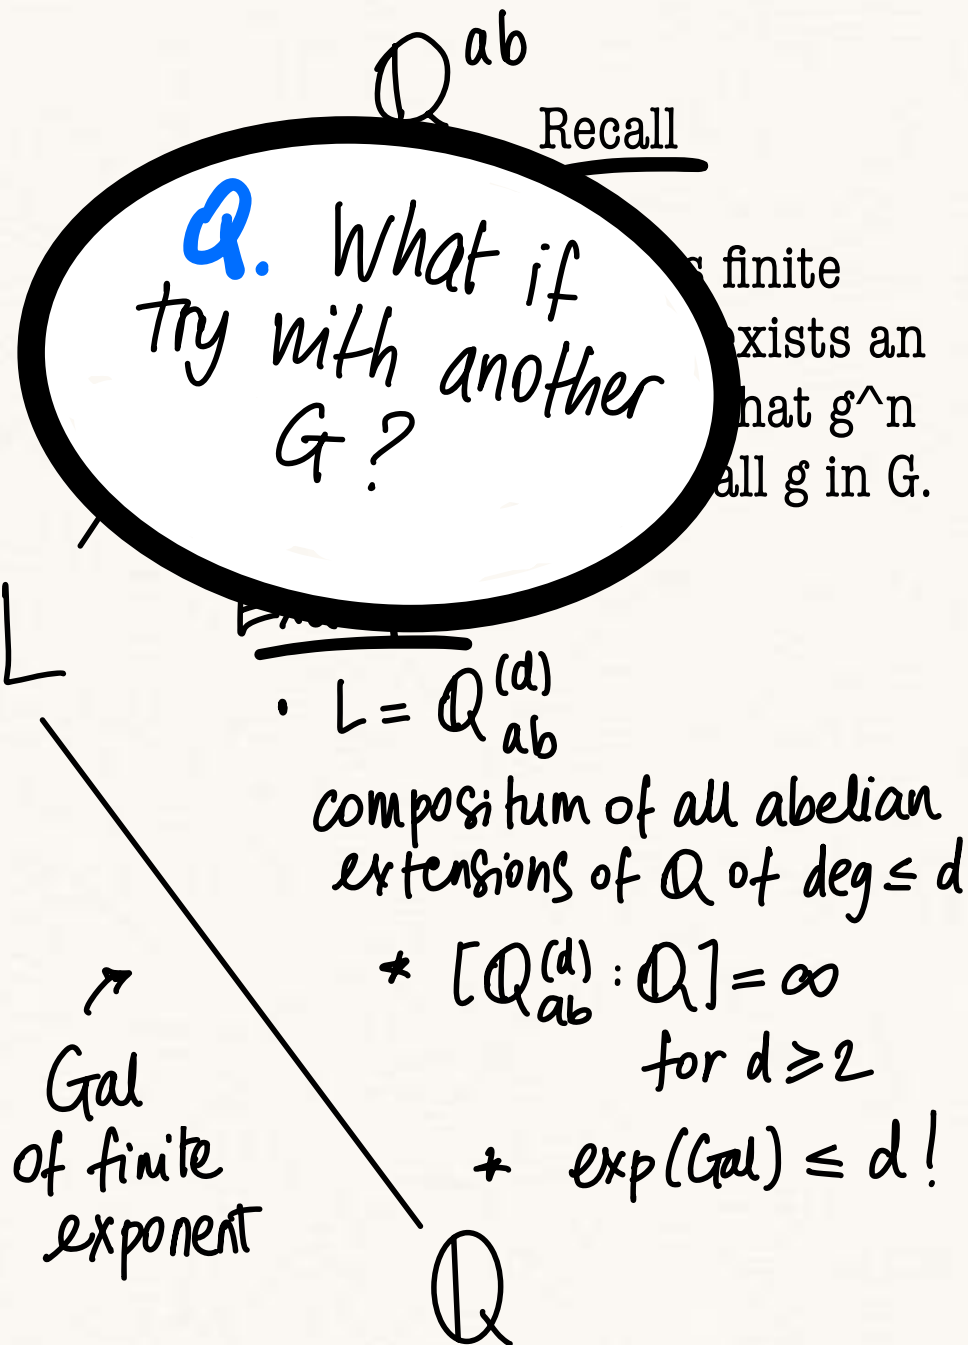 Q^ab
Recall
Q. What if
try with another
G?
finite
exists an
that g^n
all g in G.
L
• L = Q_ab^(d)
compositum of all abelian
extensions of Q of deg ≤ d
* [Q_ab^(d) : Q] = ∞
for d ≥ 2
* exp(Gal) ≤ d!
Gal
of finite
exponent
Q